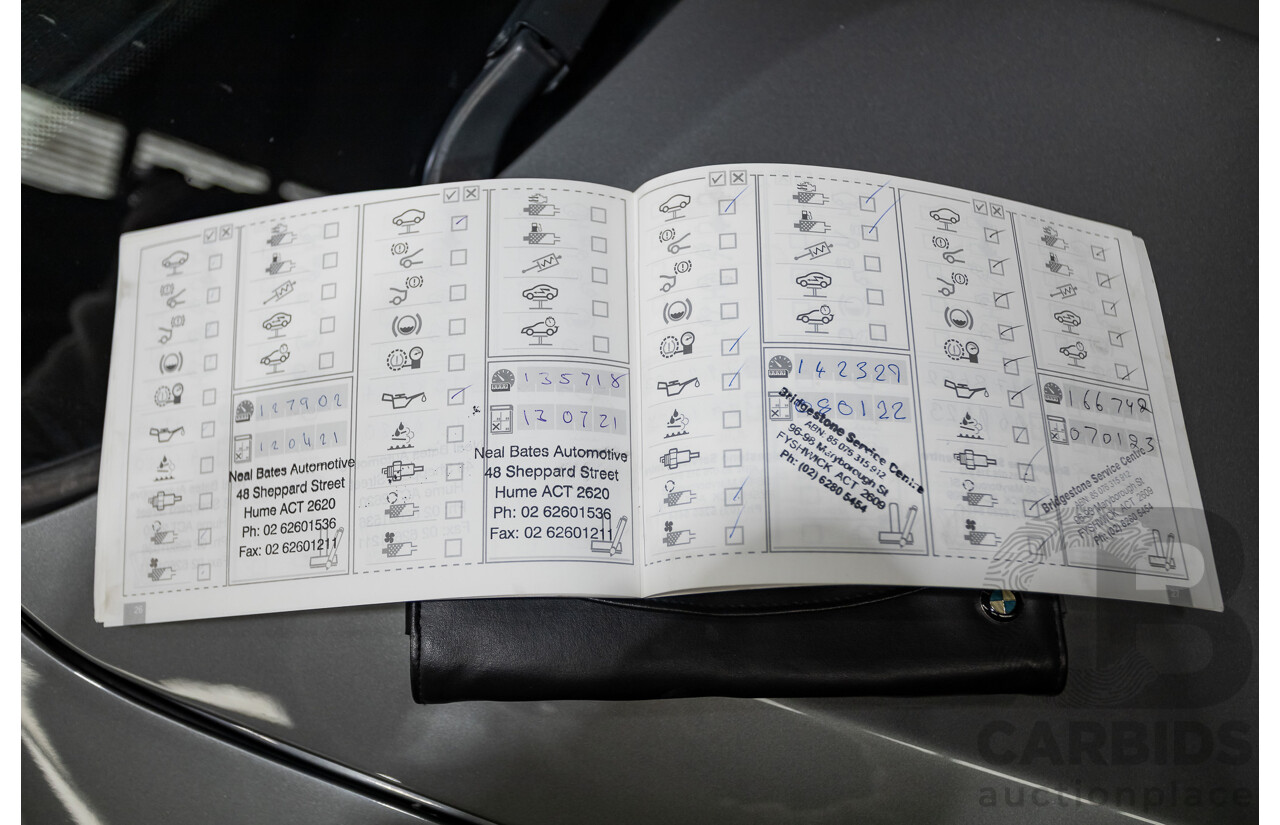 127902
120421
Neal Bates Automotive
48 Sheppard Street
Hume ACT 2620
Ph: 02 62601536
Fax: 02 62601211
26
135718
130721
Neal Bates Automotive
48 Sheppard Street
Hume ACT 2620
Ph: 02 62601536
Fax: 02 62601211
142329
Bridgestone Service Centre
ABN: 85 075 315 912
96-98 Maryborough St
FYSHWICK ACT 2609
Ph: (02) 6280 5464
166742
070123
Bridgestone Service Centre
ABN: 85 075 315 912
96-98 Maryborough St
FYSHWICK ACT 2609
Ph: (02) 6280 5464
27
CARBIDS
auctionplace